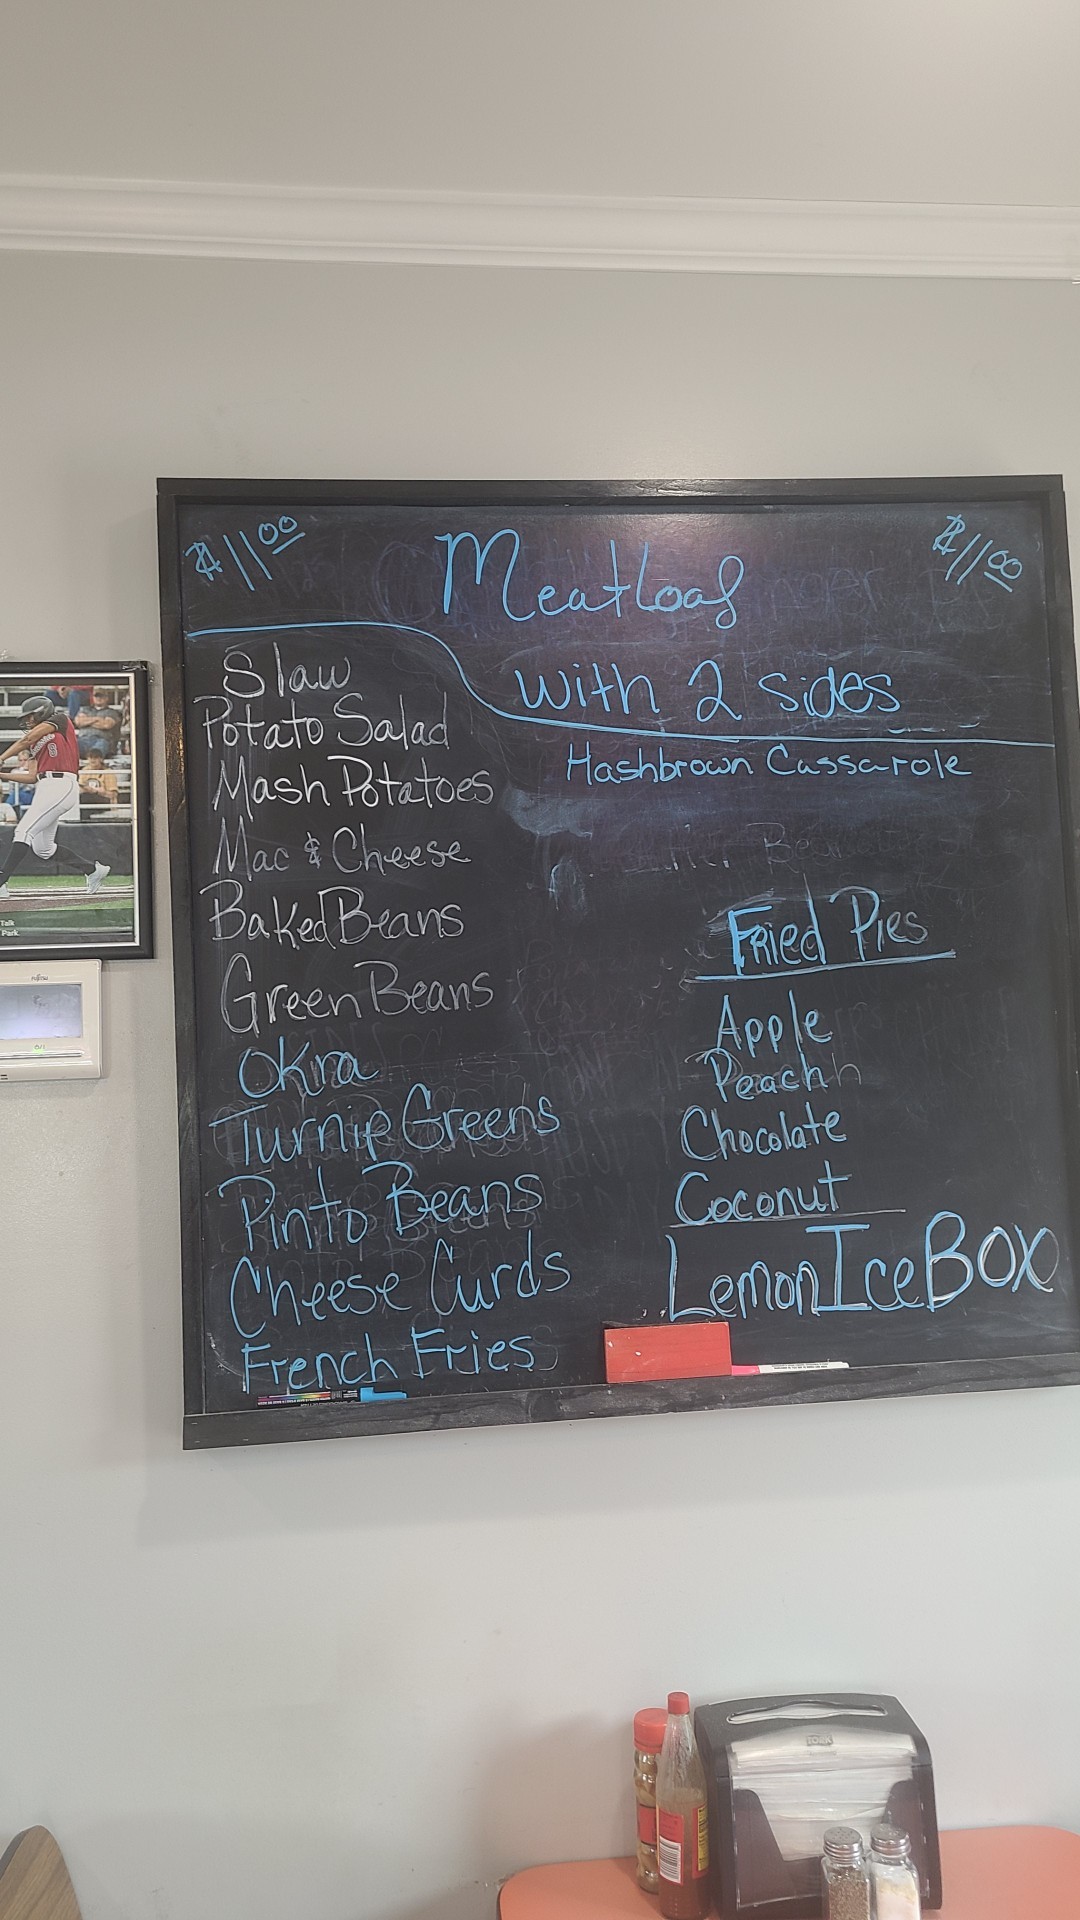 $11.00
Meatloaf
$11.00
with 2 sides
Slaw
Potato Salad
Mash Potatoes
Mac & Cheese
Baked Beans
Green Beans
Okra
Turnip Greens
Pinto Beans
Cheese Curds
French Fries
Hashbrown Cassarole
Fried Pies
Apple
Peach
Chocolate
Coconut
Lemon Ice Box
Talk
Park
FUJITSU
TORK